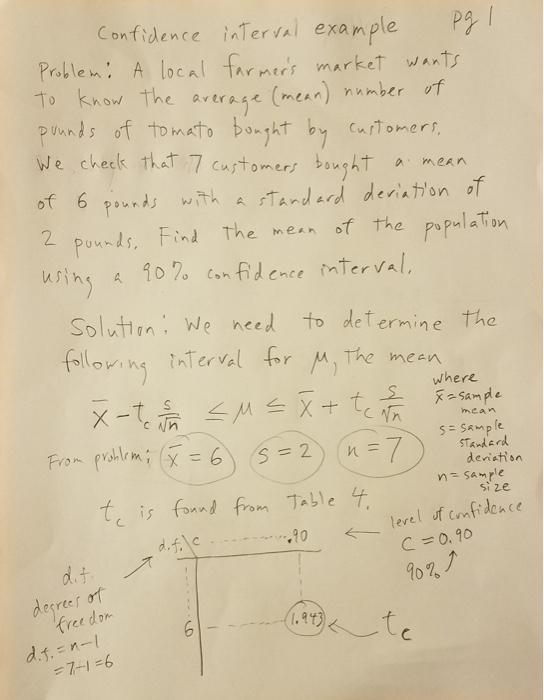 Confidence interval example pg 1
Problem: A local farmer's market wants
to know the average (mean) number of
pounds of tomato bought by customers.
We check that 7 customers bought a mean
of 6 pounds with a standard deviation of
2 pounds. Find the mean of the population
using a 90% confidence interval.
Solution: We need to determine the
following interval for μ, the mean
x̄ - t_c s/√n ≤ μ ≤ x̄ + t_c s/√n
where
x̄ = sample
mean
s = sample
standard
deviation
n = sample
size
From problem: x̄ = 6 s = 2 n = 7
t_c is found from Table 4.
d.f. \ c .90 ← level of confidence
c = 0.90
90%
d.f.
degrees of
freedom
d.f. = n-1
= 7-1 = 6
6 1.943 ← t_c